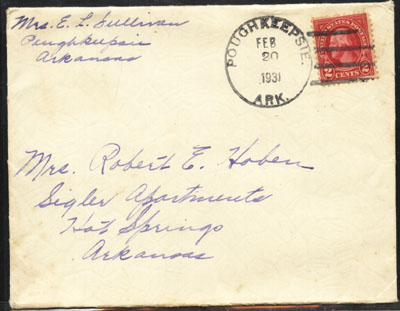 Mrs. E. L. Sullivan
Poughkeepsie
Arkansas
POUGHKEEPSIE.
FEB
20
1931
ARK.
2 CENTS 2
Mrs. Robert E. Hoben
Sigler Apartments
Hot Springs
Arkansas